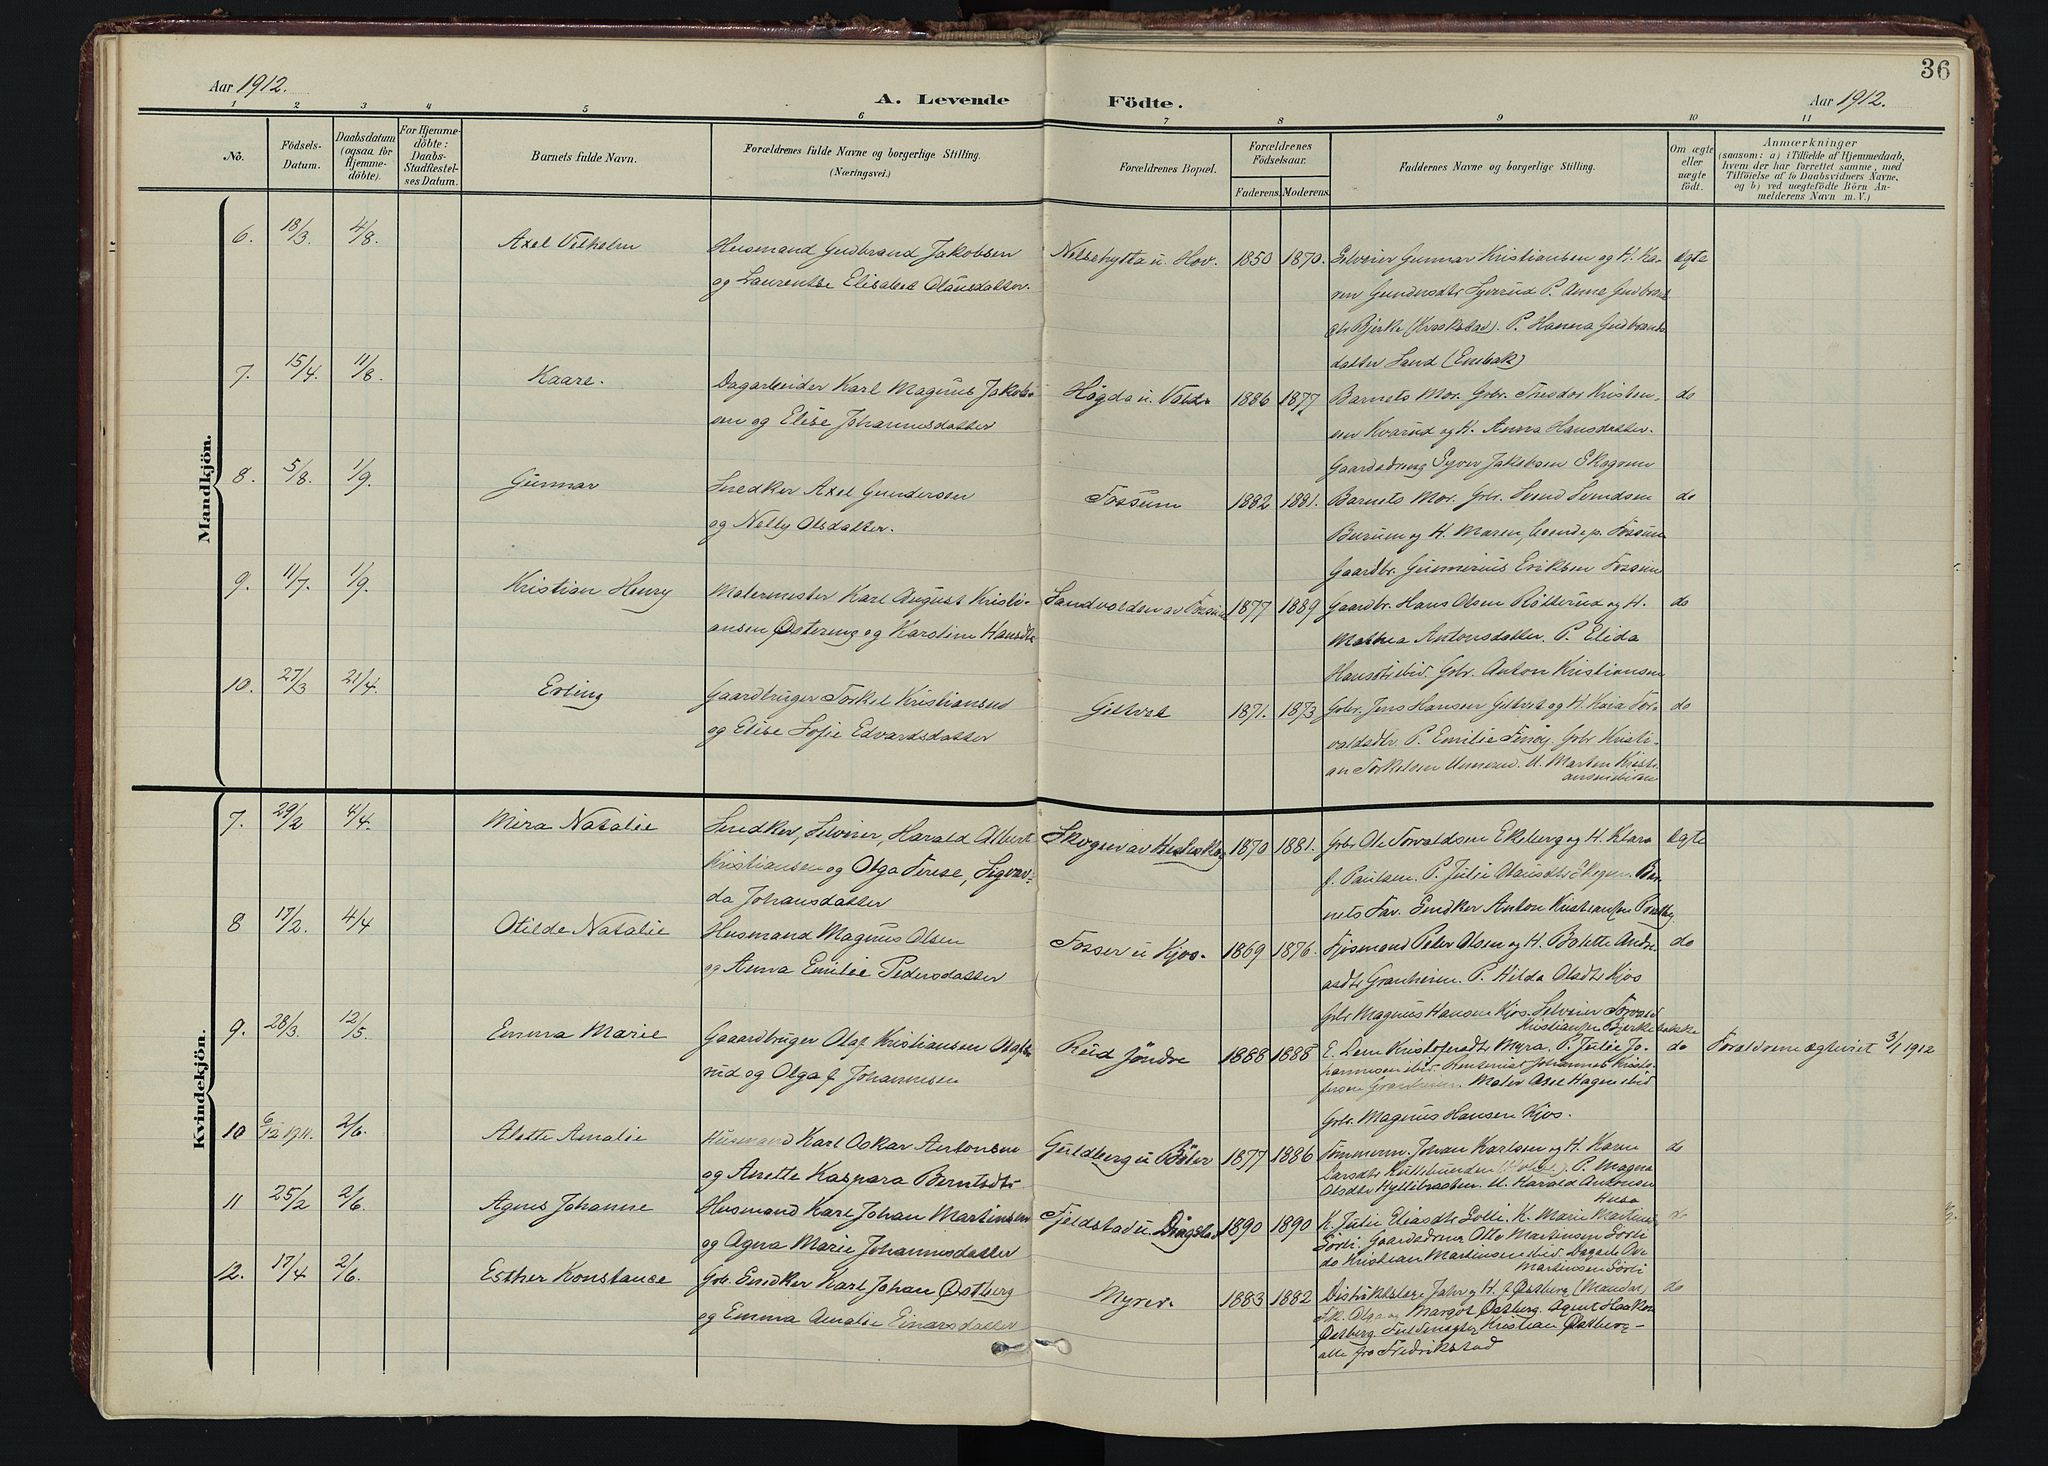 36
Aar 1912. A. Levende Födte. Aar 1912.
1 2 3 4 5 6 7 8 9 10 11
No. Födsels-Datum. Daabsdatum (ogsaa for Hjemme-döbte). For Hjemme-döbte: Daabs-Stadfæstel-ses Datum. Barnets fulde Navn. Forældrenes fulde Navne og borgerlige Stilling. (Næringsvei.) Forældrenes Bopæl. Forældrenes Födselsaar. Faderens. Moderens. Faddernes Navne og borgerlige Stilling. Om ægte eller uægte födt. Anmærkninger (saasom: a) i Tilfælde af Hjemmedaab, hvem der har forrettet samme, med Tilföielse af to Daabsvidners Navne, og b) ved uægtefödte Börn An-melderens Navn m. V.)
Mandkjön.
6. 18/3. 4/8. Axel Vilhelm Husmand Gudbrand Jakobsen Nelsehytta u. Hov. 1850 1870. Selveier Gunnar Kristiansen og H. Ka- ægte
og Laurentse Elisabet Olausdatter. ren Gundersdtr P. Anne Gudbrands
dtr Bjerke (Kraakstad). P. Hanna Gudbrands
datter Sand (Enebak)
7. 15/4. 11/8. Kaare. Dagarbeider Karl Magnus Jakob- Högda u. 1886 1877 Barnets Mor. Gbr. Theodor Kristen- do
sen og Elise Johannesdatter sen Kvarud og H. Anna Hansdatter.
Gaardsdreng Syver Jakobsen Skogum
8. 5/8. 1/9. Gunnar Snedker Axel Gundersen Fossum 1882 1881. Barnets Mor. Gbr. Svend Svendsen do
og Nelly Olsdatter. Burum og H. Maren, Fossum
Gaardbr. Gunnerius Eriksen Fossum
9. 11/7. 1/9. Kristian Henry Malermester Karl August Kristi- Sandvolden av Fossum 1877 1889 Gaardbr. Hans Olsen Rötterud og H. do
ansen Østereng og Karoline Hansdtr Mathea Antonsdatter. P. Elida
Hansdtr ibid. Gbr. Anton Kristiansen
10. 27/3 21/4. Erling Gaardbruger Torkel Kristiansen Gillvet 1871. 1873 Gbr. Jens Hansen Gillvet og H. Kaia Tor- do
og Elise Sofie Edvardsdatter valdsdtr. P. Emilie Gbr Kristi-
an Torkelsen U. Marten Kristi-
ansen ibidem
Kvindekjön.
7. 29/2 4/4. Mira Natalie Snedker, Selveier, Harald Albert Skogen av 1870 1881. Gbr Ole Torvaldsen Ekeberg og H. Klara ægte
Kristiansen og Olga Terese, Sigvar- f. Paulsen. P. Julie Olausdtr Skogen. Bar-
da Johansdatter nets Far. Snedker Anton Kristiansen
8 17/2. 4/4 Otilde Natalie Husmand Magnus Olsen Fosser u Kjos. 1869 1876. Peter Olsen og H. Bolette Andre- do
og Anna Emilie Pedersdatter asdtr Granheim. P. Hilda Olsdtr Kjos
Gbr Magnus Hansen Kjos. Selveier Torvald
Kristiansen Bjerke
9. 28/3. 12/5. Emma Marie Gaaardbruger Olaf Kristiansen Olaf- Rud Jöndre 1888 1888 E. Lene Kristofersdtr Myra. P. Julie Jo- do Foreldrene ægteviet 3/1 1912
rud og Olga f. Johannesen hannesen ibid. Johannes Kristo-
fersen Granheim. Maler Aage Hagen ibid
Gbr. Magnus Hansen Kjos.
10 6/12 1911. 2/6. Alette Amalie Husmand Karl Oskar Antonsen Guldberg u Böler 1877 1886 Tömmerm. Johan Karlsen og H. Karen do
og Anette Kaspara Berntsdtr Larsdtr P. Magna
Olsdtr U. Harald Antonsen
11 25/2 2/6. Agnes Johanne Husmand Karl Johan Martinsen Fjeldstad u. Dingstad 1890 1890 K. Julie Eliasdtr Solli. K. Marie Martins do
og Agna Marie Johannesdatter Sörli. Gaardsdreng Otto Martinsen Sörli
do Kristian Martinsen ibid. Ole
Martinsen Sörli
12. 17/4 2/6. Esther Konstanse Gbr. Snedker Karl Johan Østberg Myrer. 1883 1882 Distriktslæge Jahr og H. f. Østberg (Mandal) do
og Emma Amalie Einarsdatter Frk. Olga og Margot Østberg. Agent Haakon
Østberg Kristian Østberg -
alle fra Fredrikstad